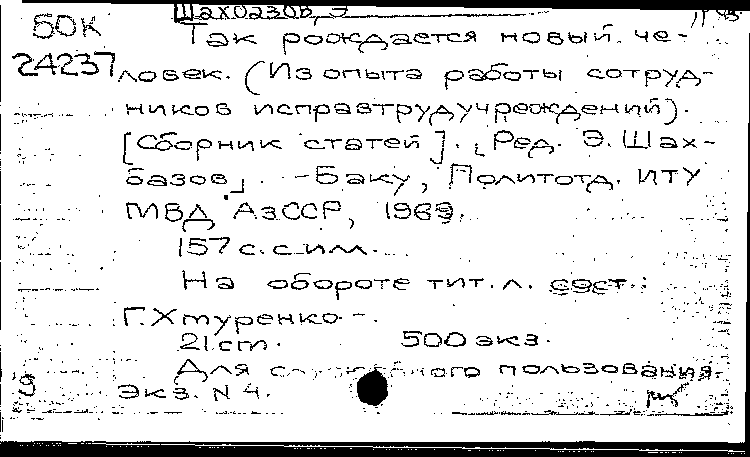 Шахбазов, Э.
50К Так рождается новый че-
24237 ловек. (Из опыта работы сотруд-
ников исправтрудучреждений).
[Сборник статей]. [Ред. Э. Шах-
базов]. - Баку, Политотд. ИТУ
МВД АзССР, 1969.
157 с. с илл.
На обороте тит. л. сост.:
Г. Хтуренко -.
21 cm. 500 экз.
Для служебного пользования.
Экз. N 4.